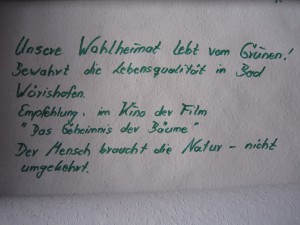 Unsere Wahlheimat lebt vom Grünen!
Bewahrt die Lebensqualität in Bad
Wörishofen.
Empfehlung, im Kino der Film
"Das Geheimnis der Bäume"
Der Mensch braucht die Natur - nicht
umgekehrt.